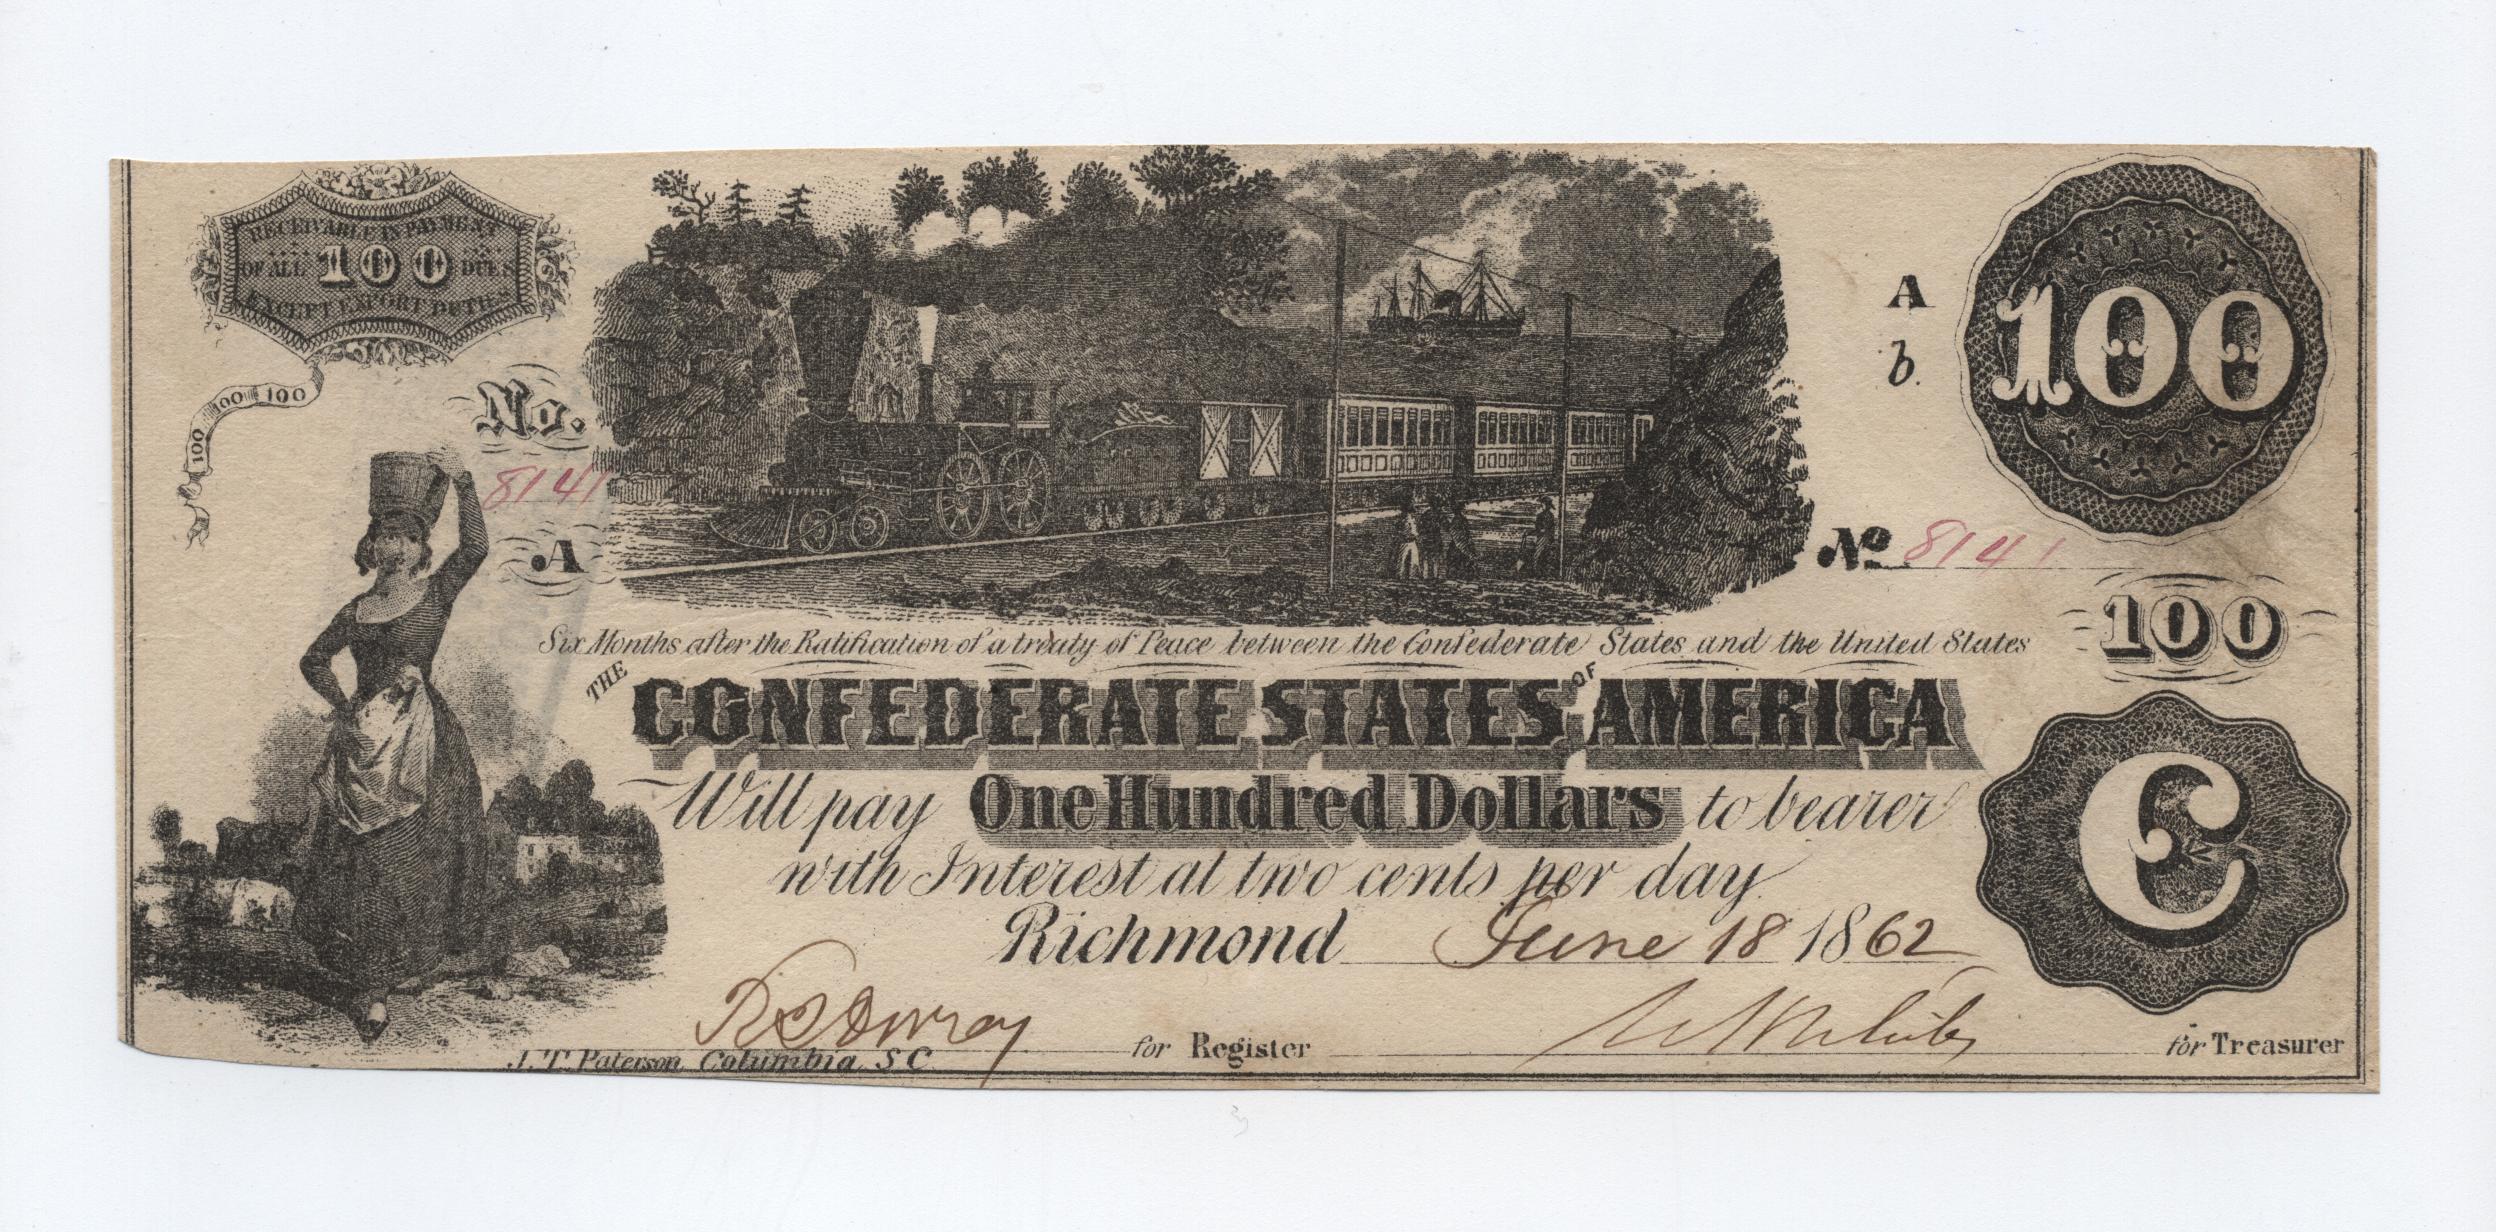 RECEIVABLE IN PAYMENT
OF ALL 100 DUES
EXCEPT EXPORT DUTIES
100 100 100
No.
8141
A
A
b.
100
No 8141
100
Six Months after the Ratification of a treaty of Peace between the Confederate States and the United States
THE CONFEDERATE STATES OF AMERICA
Will pay One Hundred Dollars to bearer
with Interest at two cents per day
C
Richmond June 18 1862
for Register
for Treasurer
J. T. Paterson Columbia, S C